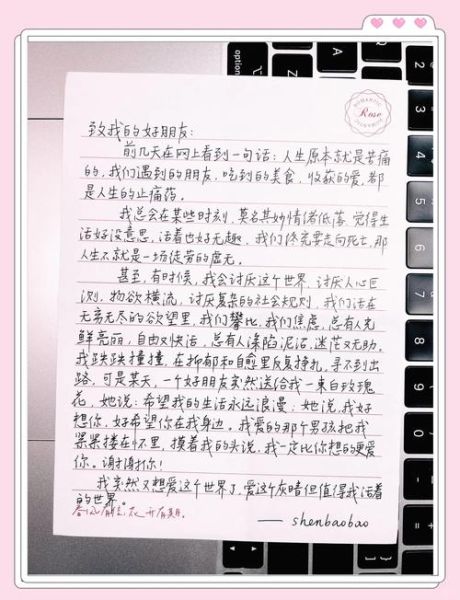 ROMANTIC
Rose
致我的好朋友:
前几天在网上看到一句话:人生原本就是苦痛
的,我们遇到的朋友,吃到的美食,收获的爱,都
是人生的止痛药。
我总会在某些时刻,莫名其妙情绪低落,觉得生
活好没意思,活着也好无趣,我们终究要走向死亡,那
人生不就是一场徒劳的虚无。
甚至,有时候,我会讨厌这个世界,讨厌人心叵
测,物欲横流,讨厌复杂的社会规则,我们活在
无穷无尽的欲望里,我们攀比,我们焦虑,总有人光
鲜亮丽,自由又快活,总有人深陷泥沼,迷茫又无助。
我跌跌撞撞,在抑郁和自愈里反复挣扎,寻不到出
路,可是某天,一个好朋友突然送给我一束白玫瑰
花,她说:希望我的生活永远浪漫;她说,我好
想你,好希望你在我身边。我爱的那个男孩把我
紧紧搂在怀里,摸着我的头说,我一定比你想的更爱
你。谢谢你!
我突然又想爱这个世界了,爱这个灰暗但值得我活着
的世界。
— shenbaobao
option